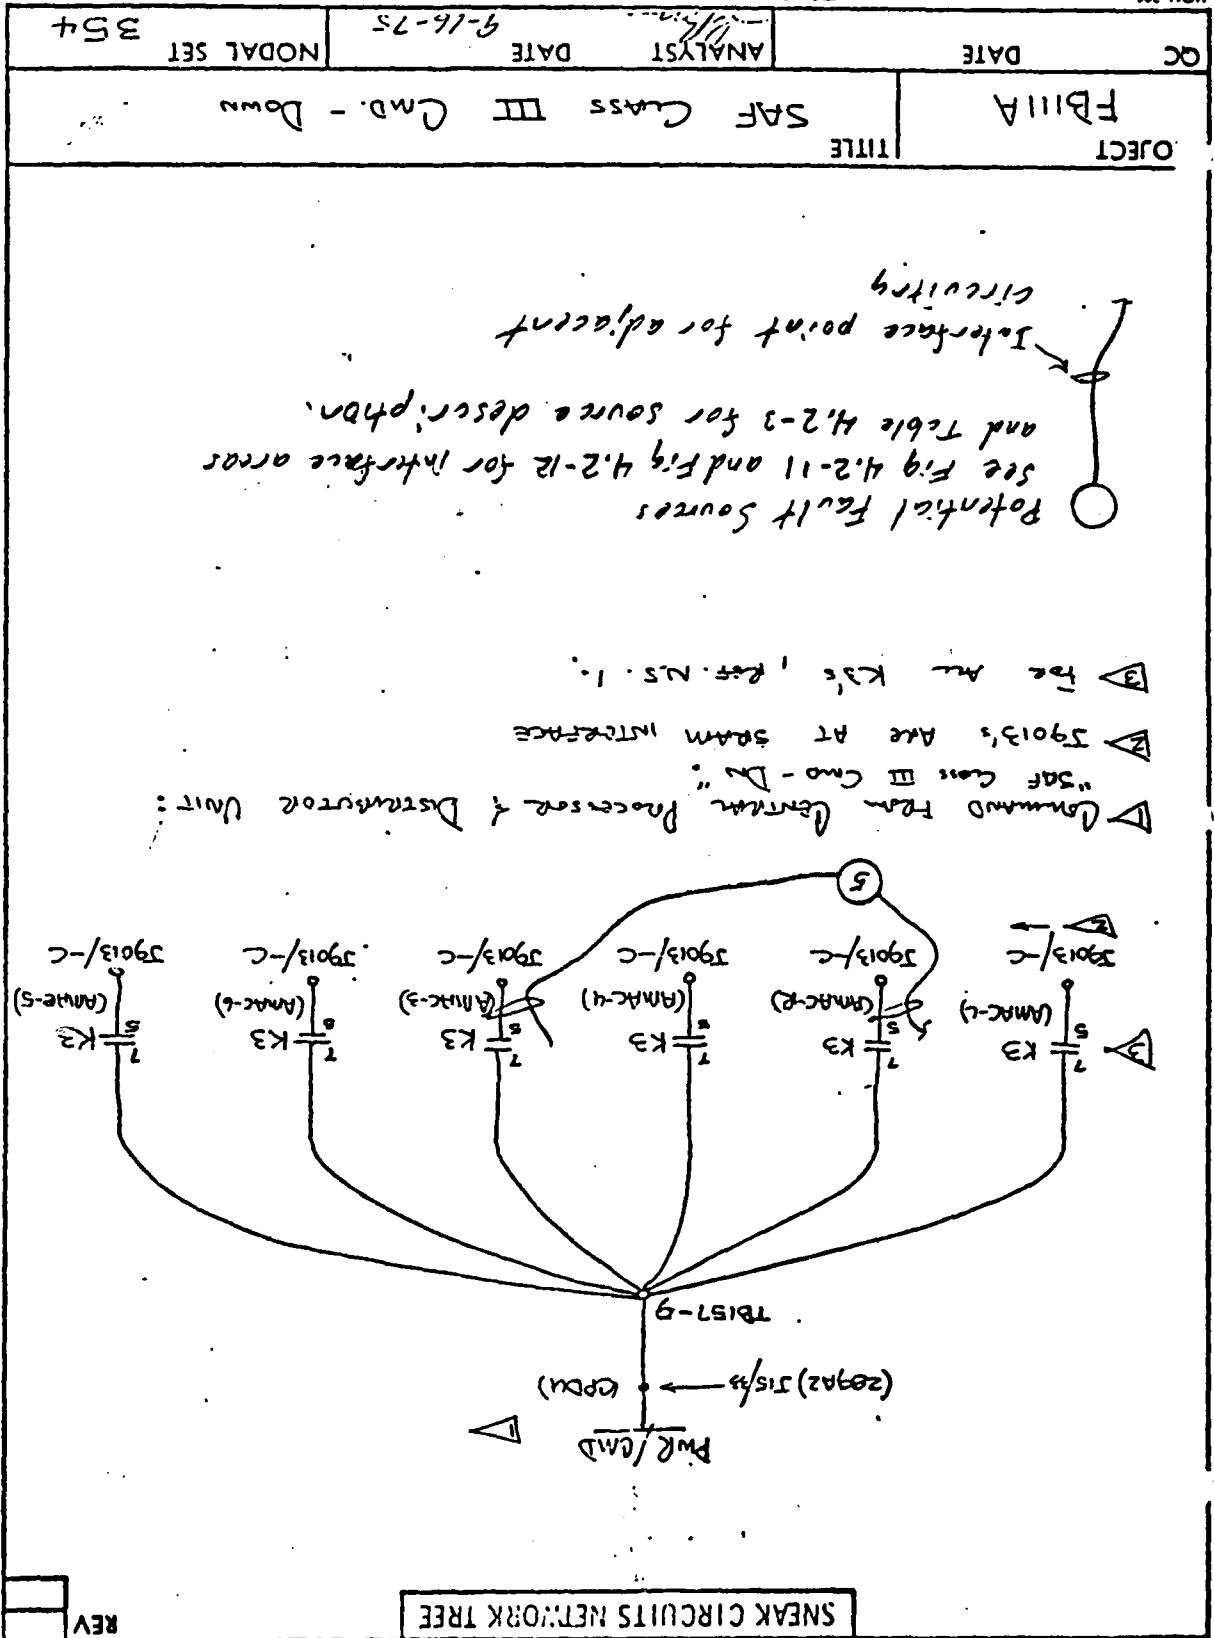 SNEAK CIRCUITS NETWORK TREE
REV
PWR/CMD
1
(209A2) J15/33 (CPDU)
TB157-9
3
7 K3 5 (AMAC-5)
7 K3 5 (AMAC-6)
7 K3 5 (AMAC-3)
7 K3 5 (AMAC-4)
7 K3 5
7 K3 5
J9013/-C
J9013/-C
J9013/-C
J9013/-C
J9013/-C
J9013/-C
2
5
1 COMMAND FROM CENTRAL PROCESSOR & DISTRIBUTOR UNIT:
"SAF CLASS III CMD - DN".
2 J9013's ARE AT SRAM INTERFACE
3 FOR ALL K3's, REF. N.S. 1.
Potential Fault Sources
See Fig 4.2-11 and Fig 4.2-12 for interface areas
and Table 4.2-3 for source description.
Interface point for adjacent
circuitry
OJECT
FB111A
TITLE
SAF CLASS III CMD. - DOWN
QC
DATE
ANALYST
DATE
9-16-75
NODAL SET
354